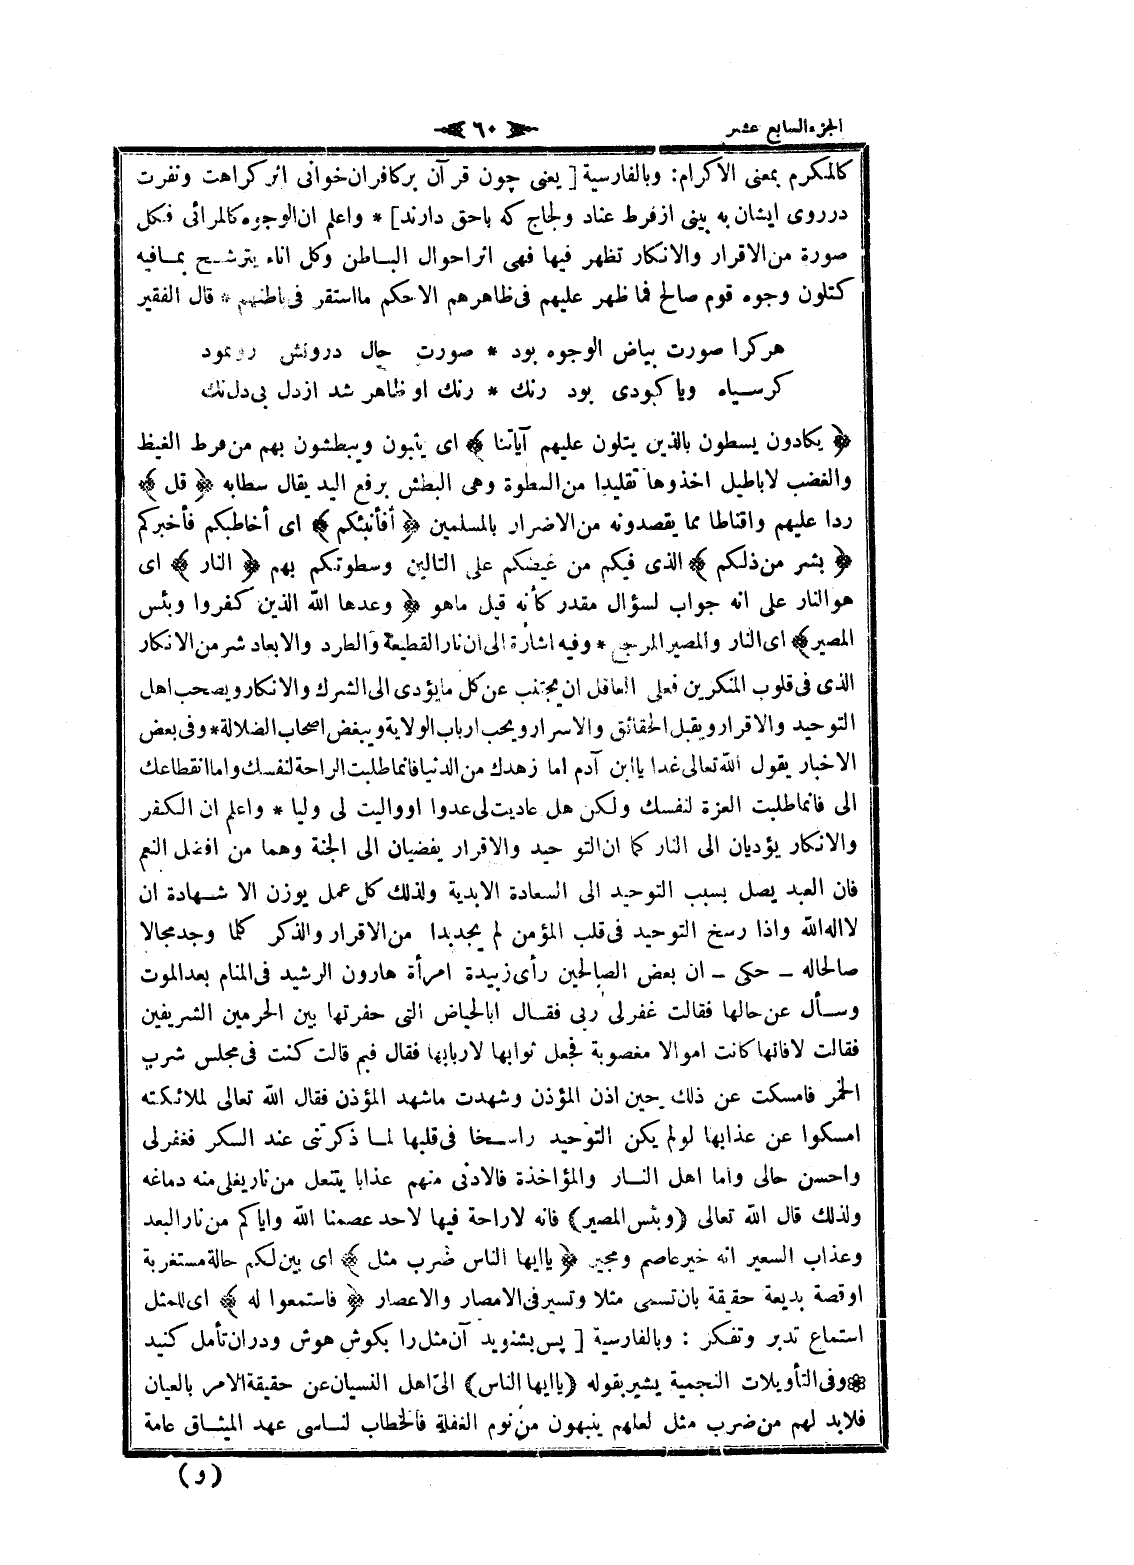 الجزء السابع عشر
٦٠
كالمكرم بمعنى الاكرام: وبالفارسية [ يعنى چون قرآن بركافران خوانى اثر كراهت ونفرت
درروى ايشان به بينى ازفرط عناد ولجاج كه باحق دارند] * واعلم ان الوجوه كالمرائى فكل
صورة من الاقرار والانكار تظهر فيها فهى اثر احوال الباطن وكل اناء يترشح بمافيه
كتلون وجوه قوم صالح فما ظهر عليهم فى ظاهرهم الاحكم مااستقر فى باطنهم * قال الفقير
هركرا صورت بياض الوجوه بود * صورت حال درونش رونمود
كرسياه وياكبودى بود رنك * رنك او ظاهر شد ازدل بى دلنك
﴿ يكادون يسطون بالذين يتلون عليهم آياتنا ﴾ اى يثبون ويبطشون بهم من فرط الغيظ
والغضب لاباطيل اخذوها تقليدا من السطوة وهى البطش برفع اليد يقال سطابه ﴿ قل ﴾
ردا عليهم واقناطا مما يقصدونه من الاضرار بالمسلمين ﴿ أفأنبئكم ﴾ اى أخاطبكم فأخبركم
﴿ بشر من ذلكم ﴾ الذى فيكم من غيضكم على التالين وسطوتكم بهم ﴿ النار ﴾ اى
هوالنار على انه جواب لسؤال مقدر كأنه قيل ماهو ﴿ وعدها الله الذين كفروا وبئس
المصير﴾ اى النار والمصير المرجع * وفيه اشارة الى ان نار القطيعة والطرد والابعاد شر من الانكار
الذى فى قلوب المنكرين فعلى العاقل ان يجتنب عن كل مايؤدى الى الشرك والانكار ويصحب اهل
التوحيد والاقرار ويقبل الحقائق والاسرار ويحب ارباب الولاية ويبغض اصحاب الضلالة * وفى بعض
الاخبار يقول الله تعالى غدا ياابن آدم اما زهدك من الدنيا فانماطلبت الراحة لنفسك واما انقطاعك
الى فانماطلبت العزة لنفسك ولكن هل عاديت لى عدوا اوواليت لى وليا * واعلم ان الكفر
والانكار يؤديان الى النار كما ان التو حيد والاقرار يفضيان الى الجنة وهما من افضل النعم
فان العبد يصل بسبب التوحيد الى السعادة الابدية ولذلك كل عمل يوزن الا شهادة ان
لااله الله واذا رسخ التوحيد فى قلب المؤمن لم يجدبدا من الاقرار والذكر كلما وجد مجالا
صالحاله ـ حكى ـ ان بعض الصالحين رأى زبيدة امرأة هارون الرشيد فى المنام بعد الموت
وسأل عن حالها فقالت غفر لى ربى فقال ابالحياض التى حفرتها بين الحرمين الشريفين
فقالت لا فانها كانت اموالا مغصوبة فجعل ثوابها لاربابها فقال فبم قالت كنت فى مجلس شرب
الخمر فامسكت عن ذلك حين اذن المؤذن وشهدت ماشهد المؤذن فقال الله تعالى لملائكته
امسكوا عن عذابها لولم يكن التوحيد راسخا فى قلبها لما ذكرتنى عند السكر فغفر لى
واحسن حالى واما اهل النار والمؤاخذة فالادنى منهم عذابا يتنعل من نار يغلى منه دماغه
ولذلك قال الله تعالى (وبئس المصير) فانه لاراحة فيها لاحد عصمنا الله واياكم من نار البعد
وعذاب السعير انه خير عاصم ومجير ﴿ ياايها الناس ضرب مثل ﴾ اى بين لكم حالة مستغربة
اوقصة بديعة حقيقة بان تسمى مثلا وتسير فى الامصار والاعصار ﴿ فاستمعوا له ﴾ اى للمثل
استماع تدبر وتفكر : وبالفارسية [ پس بشنويد آن مثل را بكوش هوش ودران تأمل كنيد
وفى التأويلات النجمية يشير بقوله (ياايها الناس) الى اهل النسيان عن حقيقة الامر بالعيان
فلابد لهم من ضرب مثل لعلهم ينبهون من نوم الغفلة فالخطاب لناسى عهد الميثاق عامة
(و)